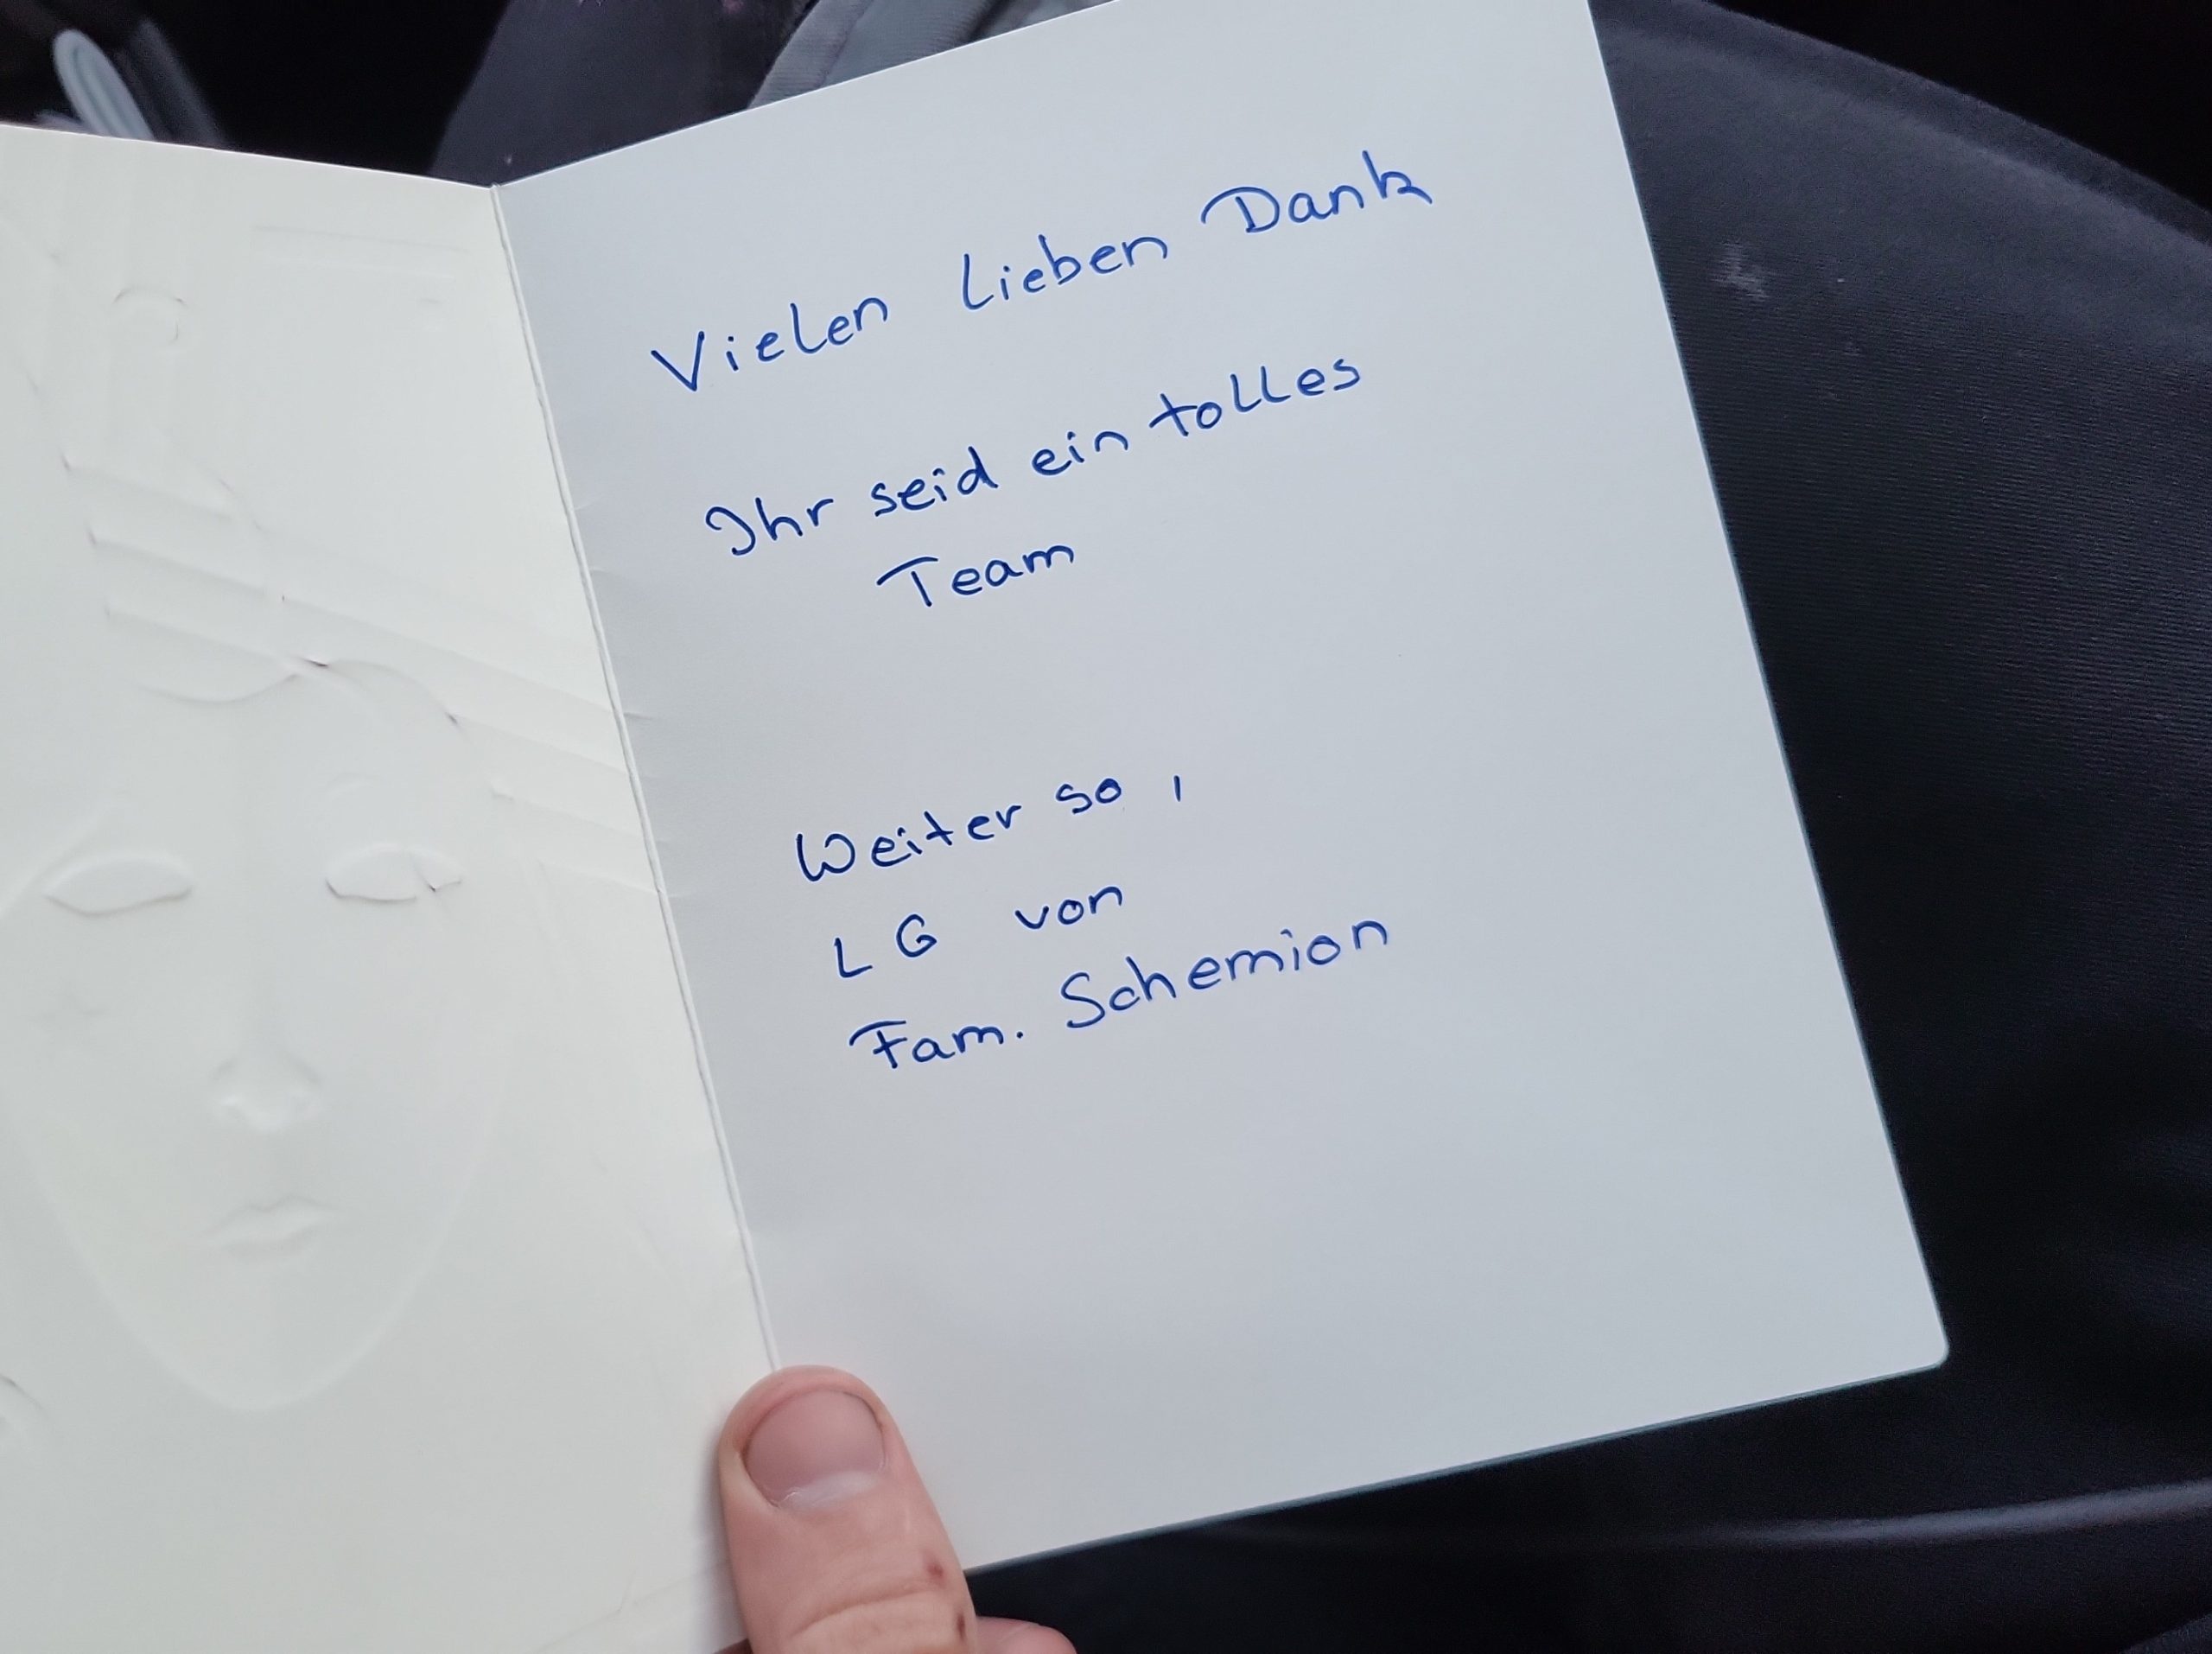 Vielen Lieben Dank
Ihr seid ein tolles
Team
Weiter so,
LG von
Fam. Schemion